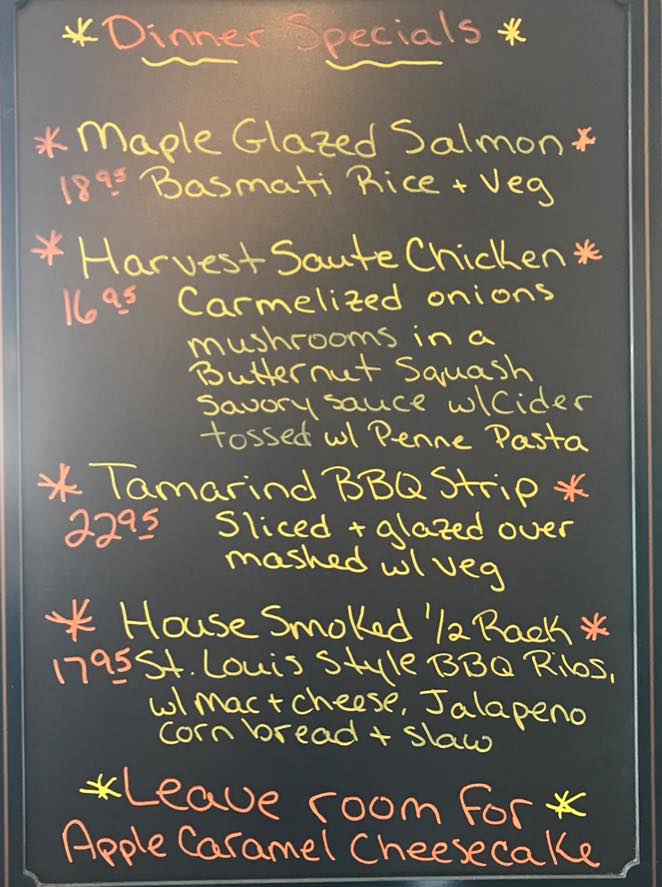 * Dinner Specials *
* Maple Glazed Salmon *
18.95 Basmati Rice + Veg
* Harvest Saute Chicken *
16.95 Carmelized onions
mushrooms in a
Butternut Squash
Savory sauce w/Cider
tossed w/ Penne Pasta
* Tamarind BBQ Strip *
22.95 Sliced + glazed over
mashed w/ veg
* House Smoked 1/2 Rack *
17.95 St. Louis Style BBQ Ribs,
w/ Mac + cheese, Jalapeno
corn bread + slaw
* Leave room for *
Apple Caramel Cheesecake